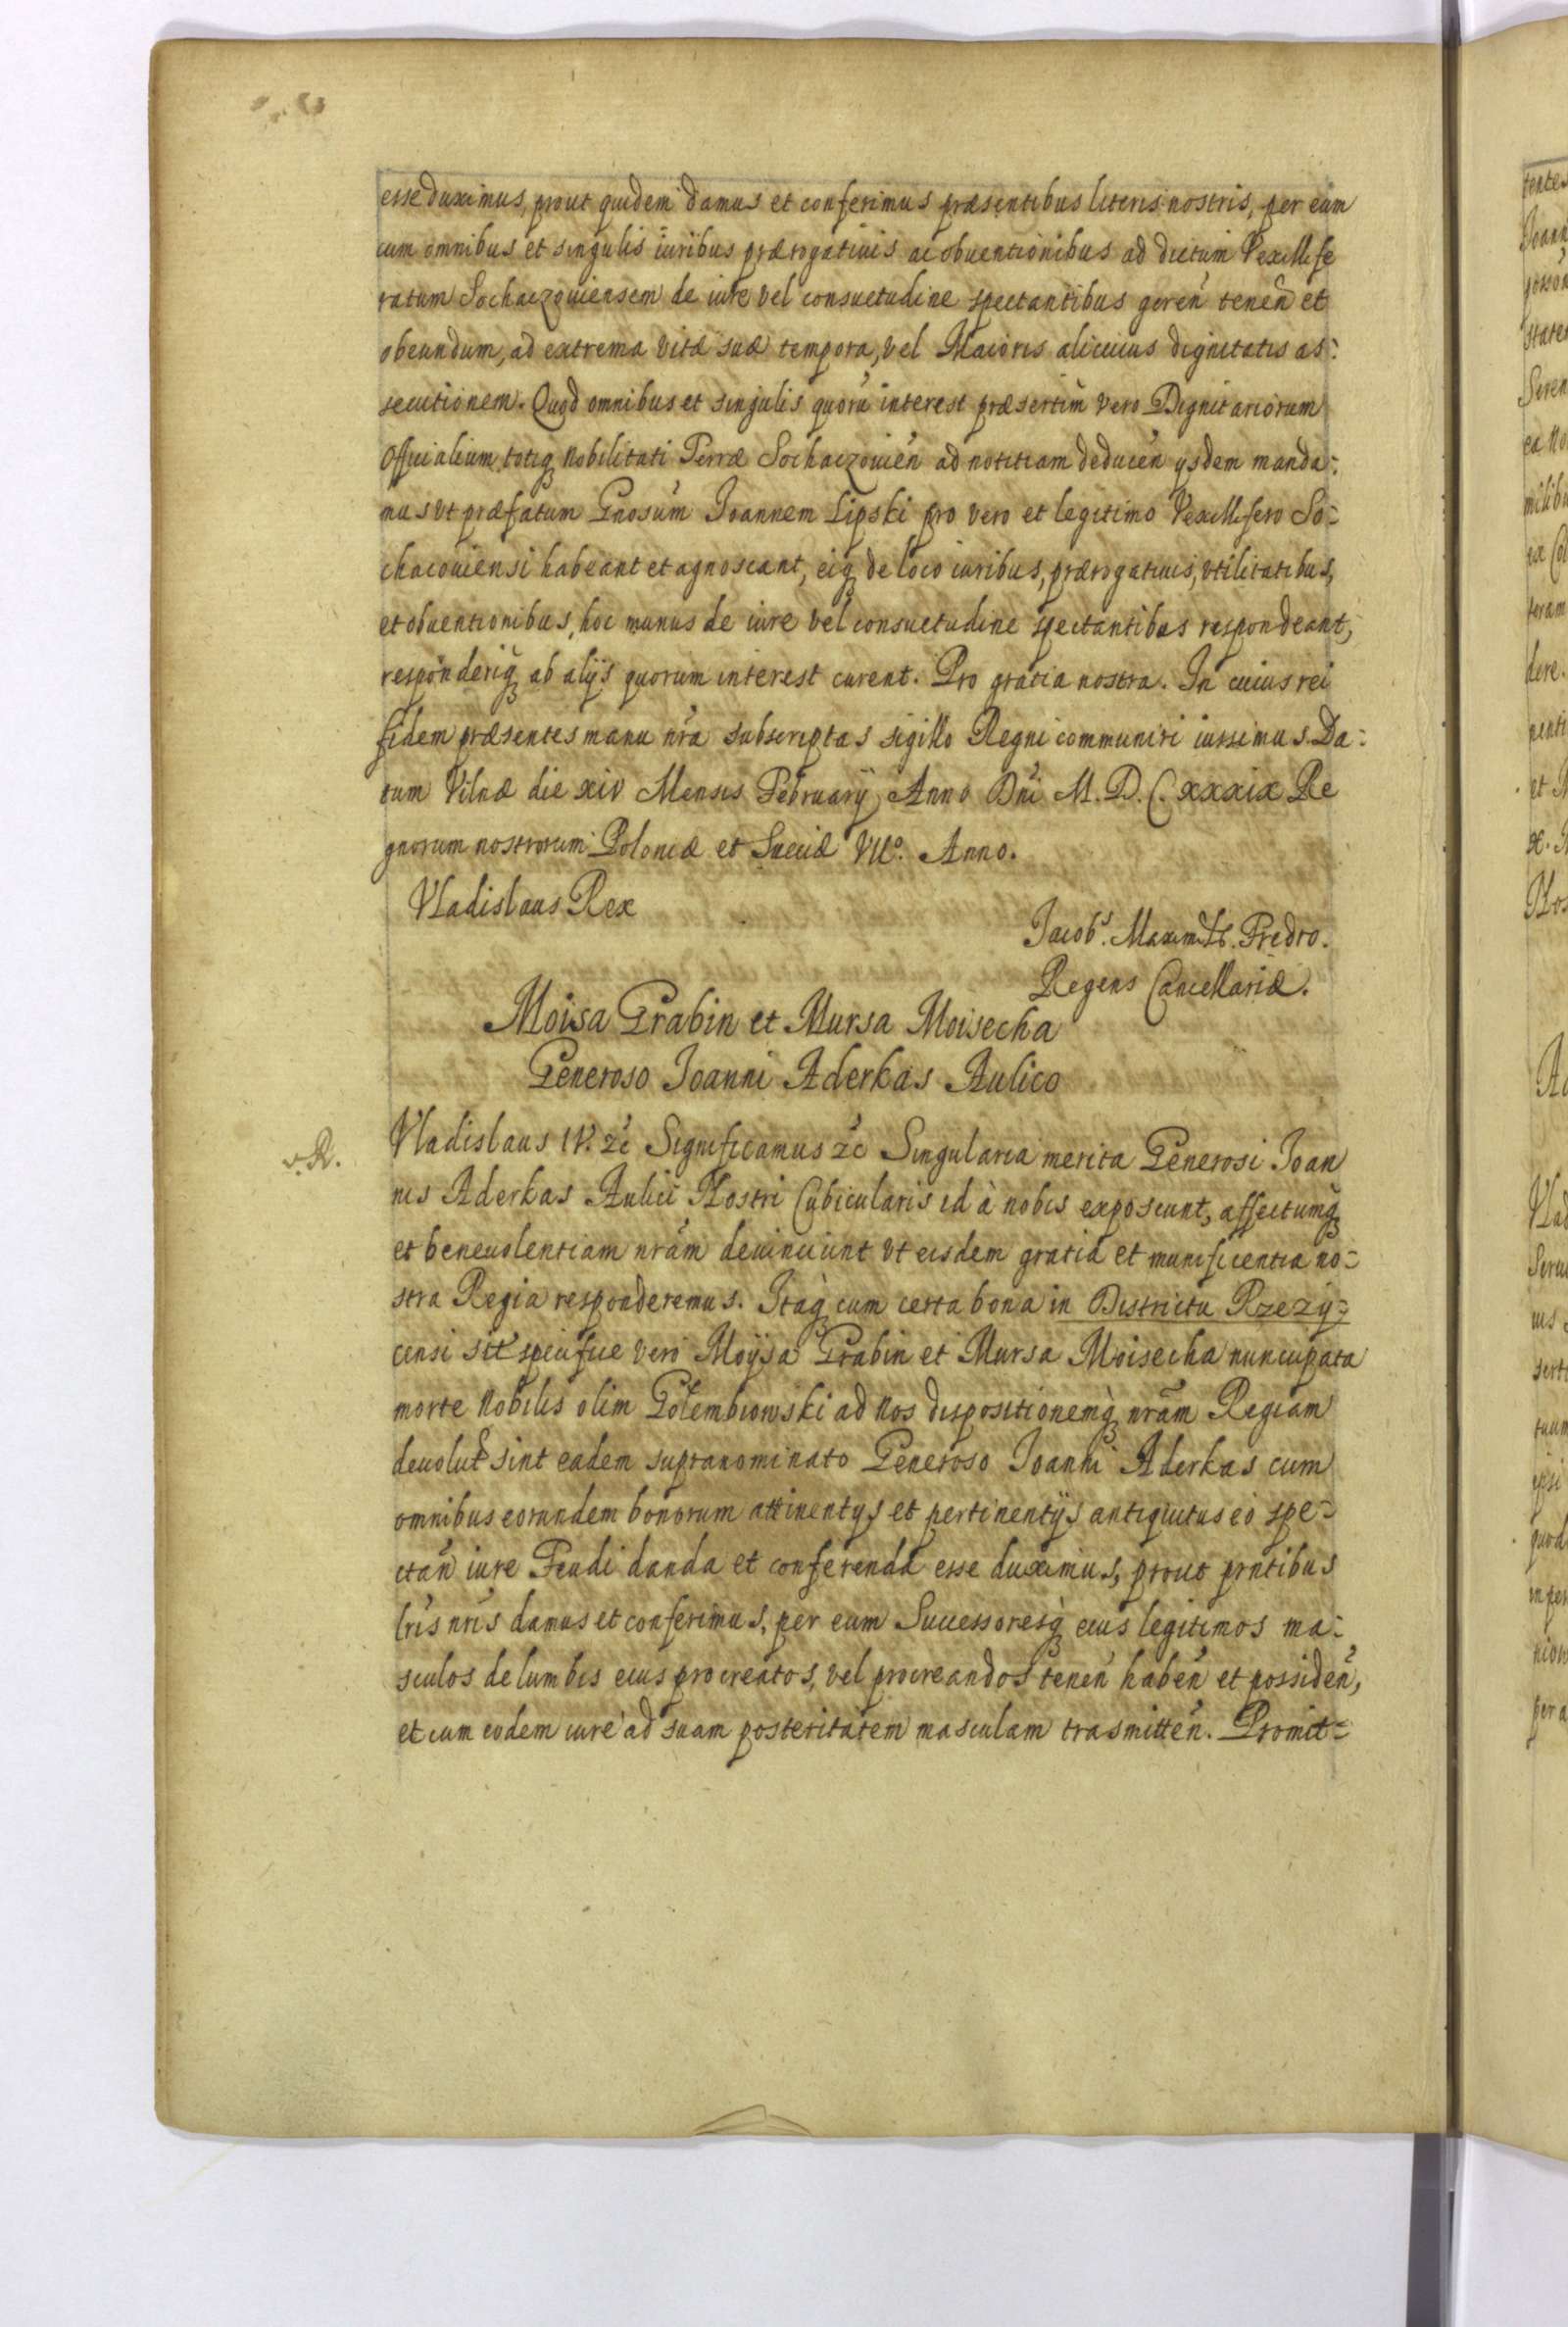 esse duximus, prout quidem damus et conferimus præsentibus literis nostris, per eum
cum omnibus et singulis iuribus prærogatiuis ac obuentionibus ad dictum Vexillife
ratum Sochaczouiensem de iure vel consuetudine spectantibus geren̄ tenen̄ et
obeundum, ad extrema vitæ suæ tempora, vel Maioris alicuius dignitatis as:
secutionem. Quod omnibus et singulis quorū interest præsertim vero Dignitariorum
Officialium, totiq₃ Nobilitati Terræ Sochaczouien̄ ad notitiam deducen̄ ysdem manda:
mus vt præfatum Gnosum Joannem Lipski pro vero et legitimo Vexillifero So=
chacouiensi habeant et agnoscant, eiq₃ de loco iuribus, prærogatiuis, vtilitatibus,
et obuentionibus, hoc munus de iure vel consuetudine spectantibus respondeant,
responderiq₃ ab alijs quorum interest curent. Pro gratia nostra. In cuius rei
fidem præsentes manu nr̄a subscriptas sigillo Regni communiri iussimus. Da:
tum Vilnæ die xiv Mensis February Anno Dn̄i M. D. C. xxxix Re
gnorum nostrorum Poloniæ et Sueciæ VIIo. Anno.
Vladislaus Rex
Jacobs. Maximil. Fredro.
Regens Cancellariæ.
Moisa Grabin et Mursa Moisecha
Generoso Joanni Aderkas Aulico
v. R.
Vladislaus IV. &c Significamus &c Singularia merita Generosi Joan
nis Aderkas Aulici Nostri Cubicularis id à nobis exposcunt, affectumq₃
et beneuolentiam nr̄am deuinciunt vt eisdem gratia et munificentia no=
stra Regia responderemus. Itaq₃ cum certa bona in Districtu Rzezy=
censi sit specifice vero Moysa Grabin et Mursa Moisecha nuncupata
morte Nobilis olim Golembiowski ad Nos dispositionemq₃ nr̄am Regiam
deuoluta sint eadem supranominato Generoso Joanni Aderkas cum
omnibus eorundem bonorum attinentys et pertinentijs antiquitus eo spe=
ctan̄ iure Feudi danda et conferenda esse duximus, prout prn̄tibus
lr̄is nr̄is damus et conferimus, per eum Successoresq₃ eius legitimos ma:
sculos de lumbis eius procreatos, vel procreandos tenen̄ haben̄ et possiden̄,
et cum eodem iure ad suam posteritatem masculam trasmitten̄. Promit=